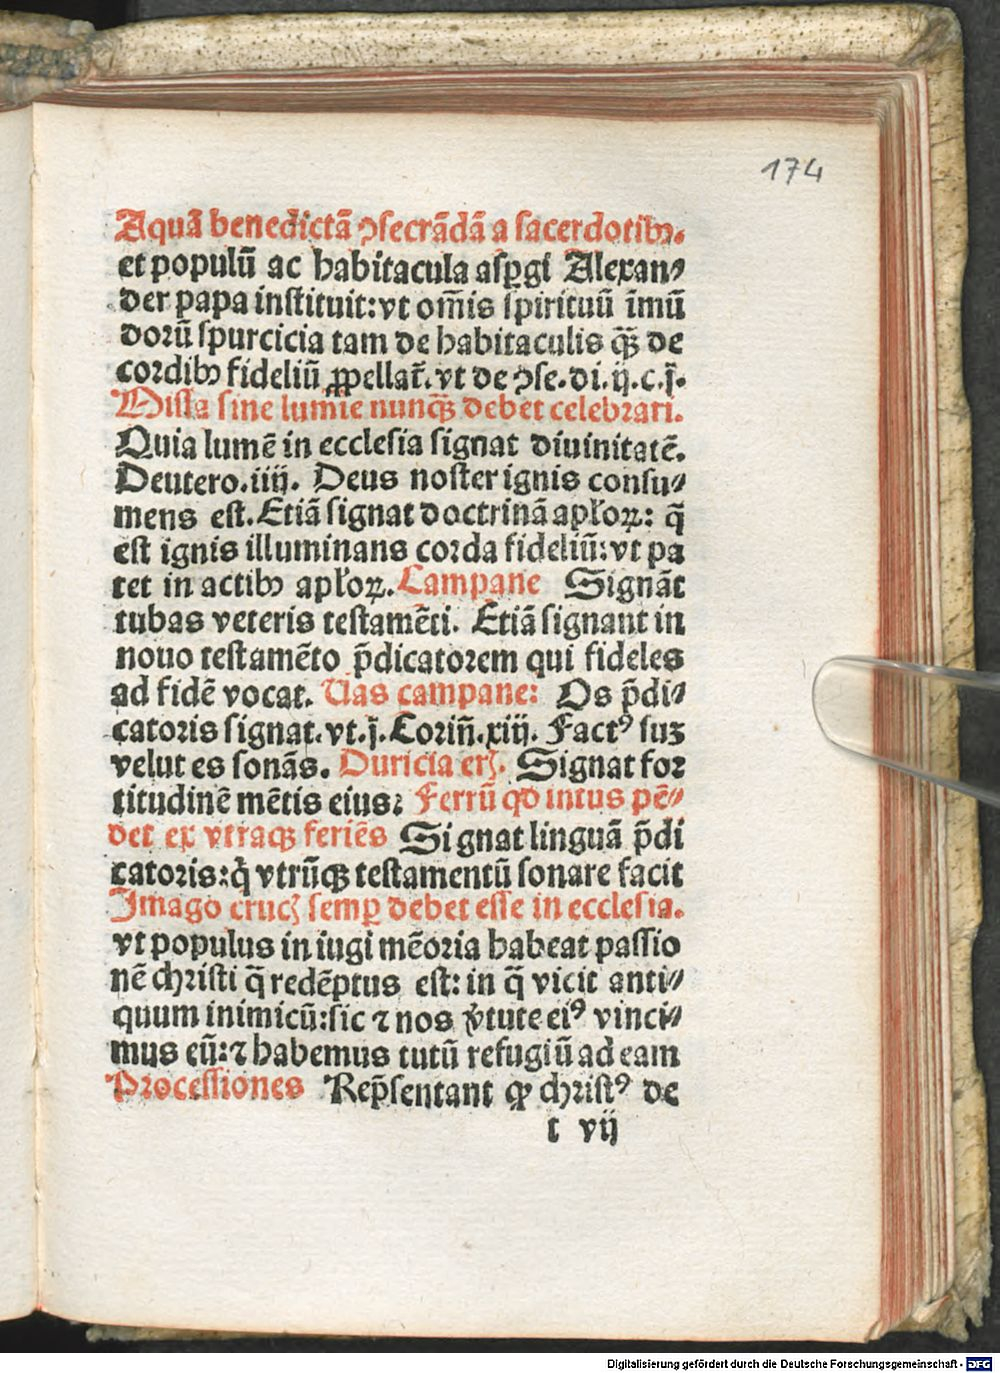 174
Aquã benedictã ꝯsecrãdã a sacerdotibꝰ.
et populũ ac habitacula asꝑgi Alexan⸗
der papa instituit: vt om̃is spirituũ ĩmũ
dorũ spurcicia tam de habitaculis qꝫ̃ de
cordibꝰ fideliũ ꝓpellat̃. vt de ꝯse. di. ij. c. j.
Missa sine lumĩe nunqꝫ̃ debet celebrari.
Quia lumẽ in ecclesia signat diuinitatẽ.
Deutero. iiij. Deus noster ignis consu⸗
mens est. Etiã signat doctrinã apl̃oꝝ: q̃
est ignis illuminans corda fideliũ: vt pa
tet in actibꝰ apl̃oꝝ. Campane Signãt
tubas veteris testamẽti. Etiã signant in
nouo testamẽto p̃dicatorem qui fideles
ad fidẽ vocat. Uas campane: Os p̃di⸗
catoris signat. vt. j. Corin̄. xiij. Factꝰ suꝫ
velut es sonãs. Duricia erꝭ. Signat for
titudinẽ mẽtis eius: Ferrũ qđ intus pẽ⸗
det ex vtraqꝫ feriẽs Signat linguã p̃di
catoris: q̇ vtrũqꝫ testamentũ sonare facit
Imago crucꝭ semꝑ debet esse in ecclesia.
vt populus in iugi mẽoria habeat passio
nẽ christi q̃ redẽptus est: in q̃ vicit anti⸗
quum inimicũ: sic ⁊ nos v̓tute eiꝰ vinci⸗
mus eũ: ⁊ habemus tutũ refugiũ ad eam
Processiones Rep̃sentant ꝙ christꝰ de
t vij
Digitalisierung gefördert durch die Deutsche Forschungsgemeinschaft - DFG